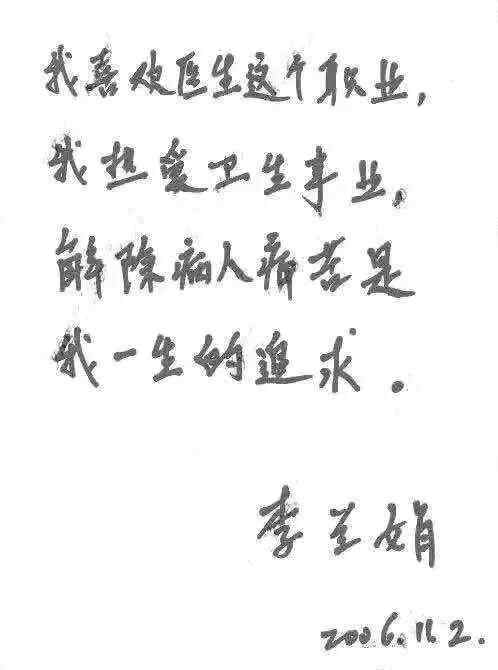 我喜欢医生这个职业，
我热爱卫生事业，
解除病人病苦是
我一生的追求．
李兰娟
2006.11.2.